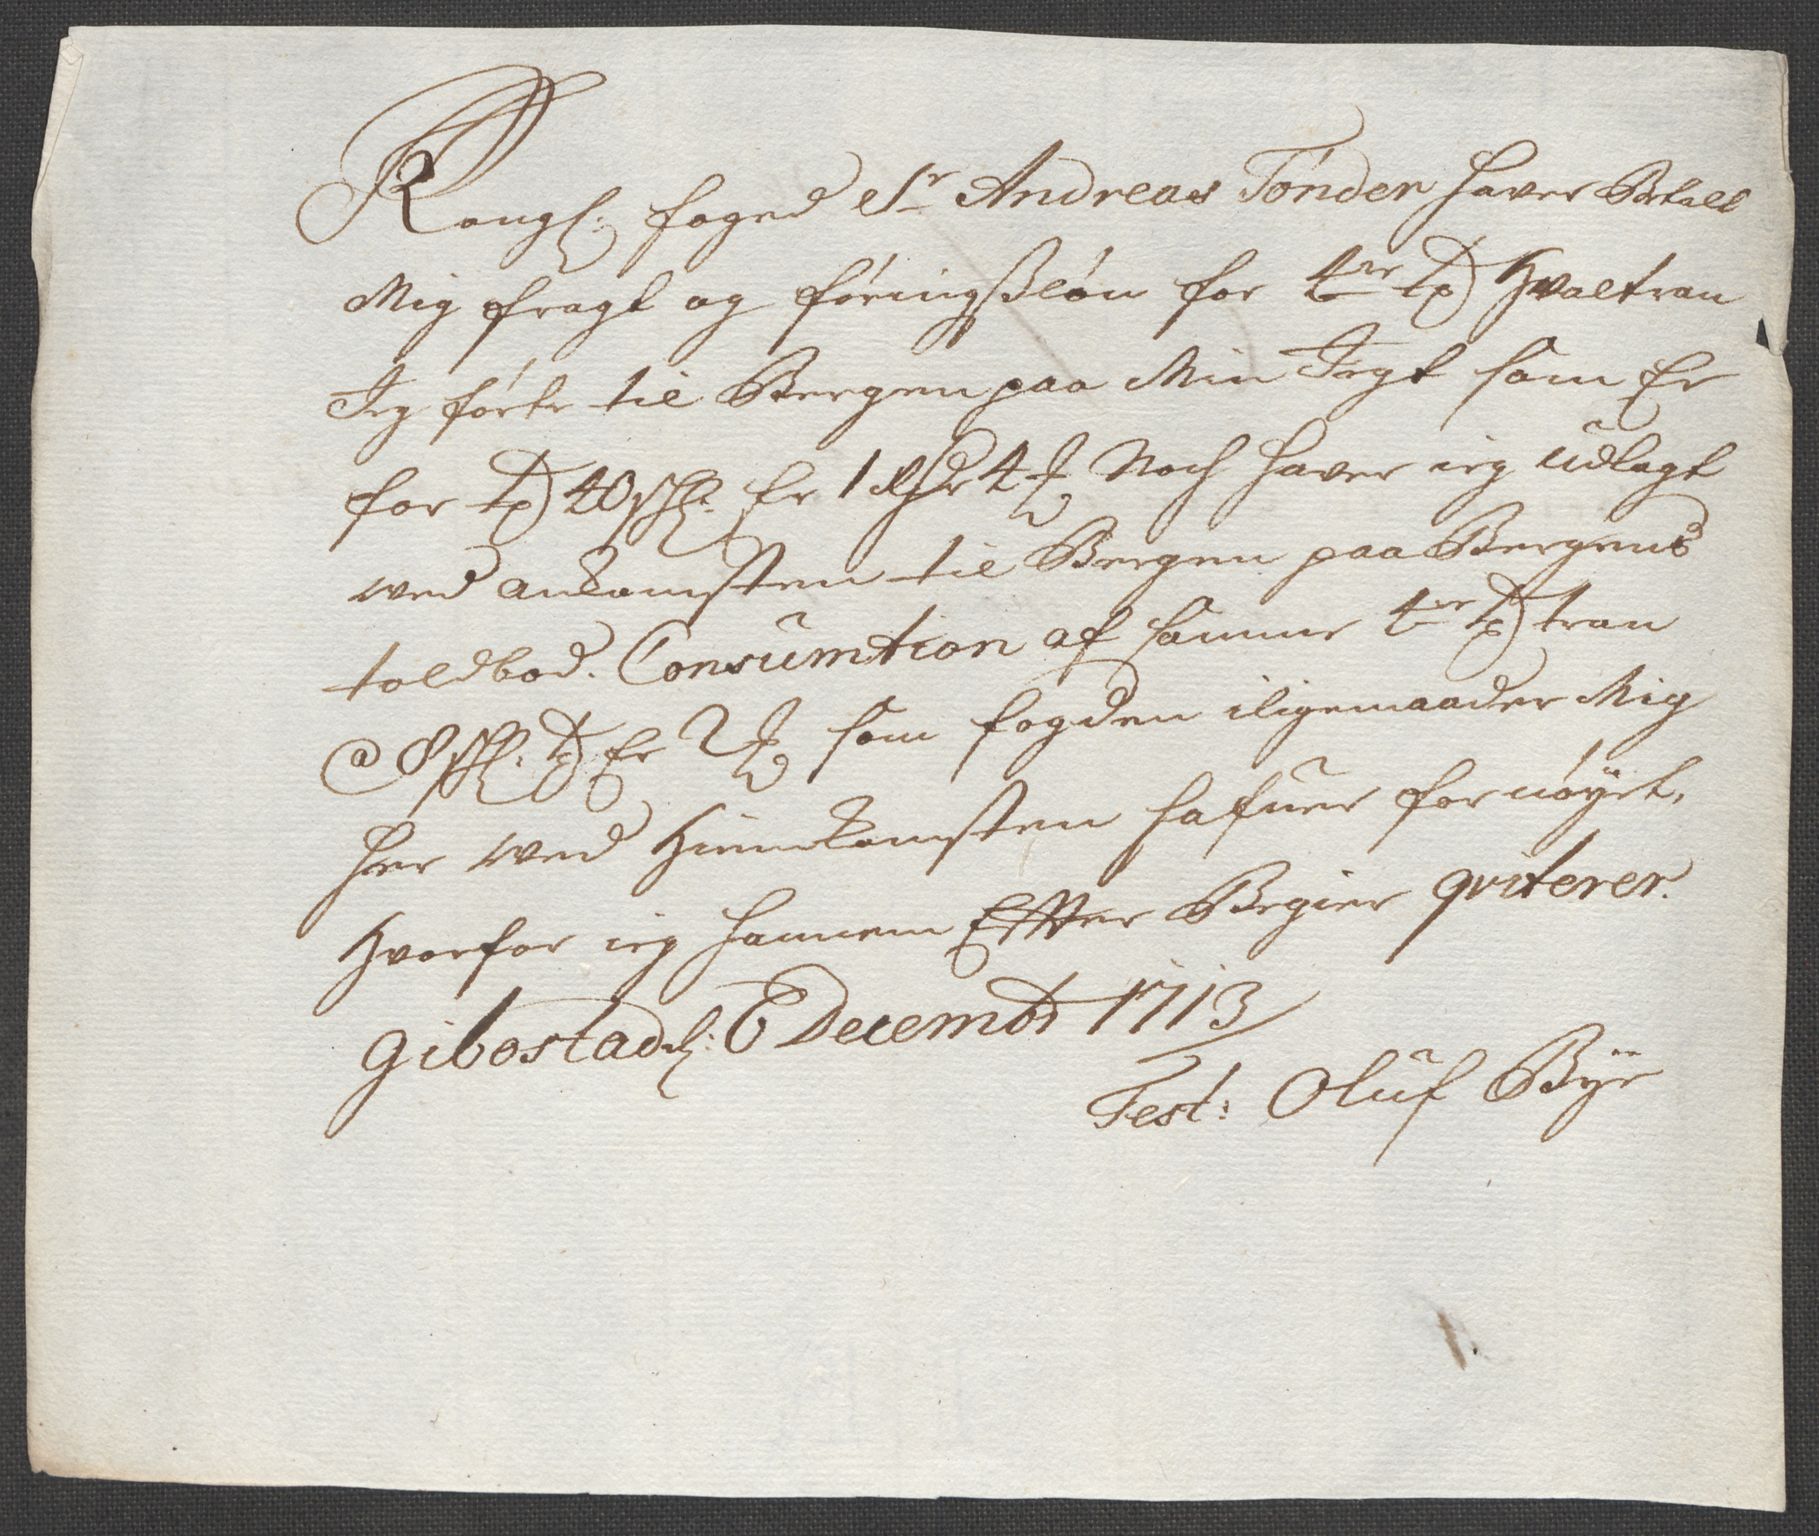 Kongl: foged Sr Andreas Tönder haver Betalt
Mig fragt og föringsßlön for 4re td Hvaltran
Jeg förte til Bergen paa Min Jegt som Er
for td 40 sk: Er 1 Rdr 4 Noch haver ieg udlagt
wed ankomsten til Bergen paa Bergens
toldbod. Consumtion af samme 4re td tran
a 8 sk: td Er 2 som fogden iligemaader Mig
her wed Hiemkomsten hafuer fornöÿet,
Hvorfor ieg hannem Effter Begier qviterer.
Gibostad d: 6 Decembr 1713
Test: Oluf Bÿe